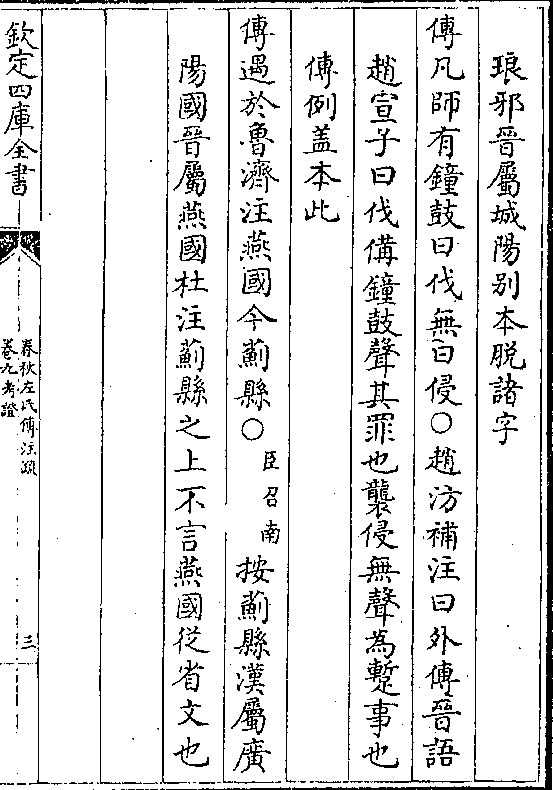 琅邪晉屬城陽别本脱諸字
傳凡師有鐘鼓曰伐無曰侵○趙汸補注曰外傳晉語
趙宣子曰伐備鐘鼓聲其罪也襲侵無聲為蹔事也
傳例盖本此
傳遇於魯濟注燕國今薊縣○臣召南按薊縣漢屬廣
陽國晉屬燕國杜注薊縣之上不言燕國從省文也
欽定四庫全書
春秋左氏傳注疏
卷九考證
三